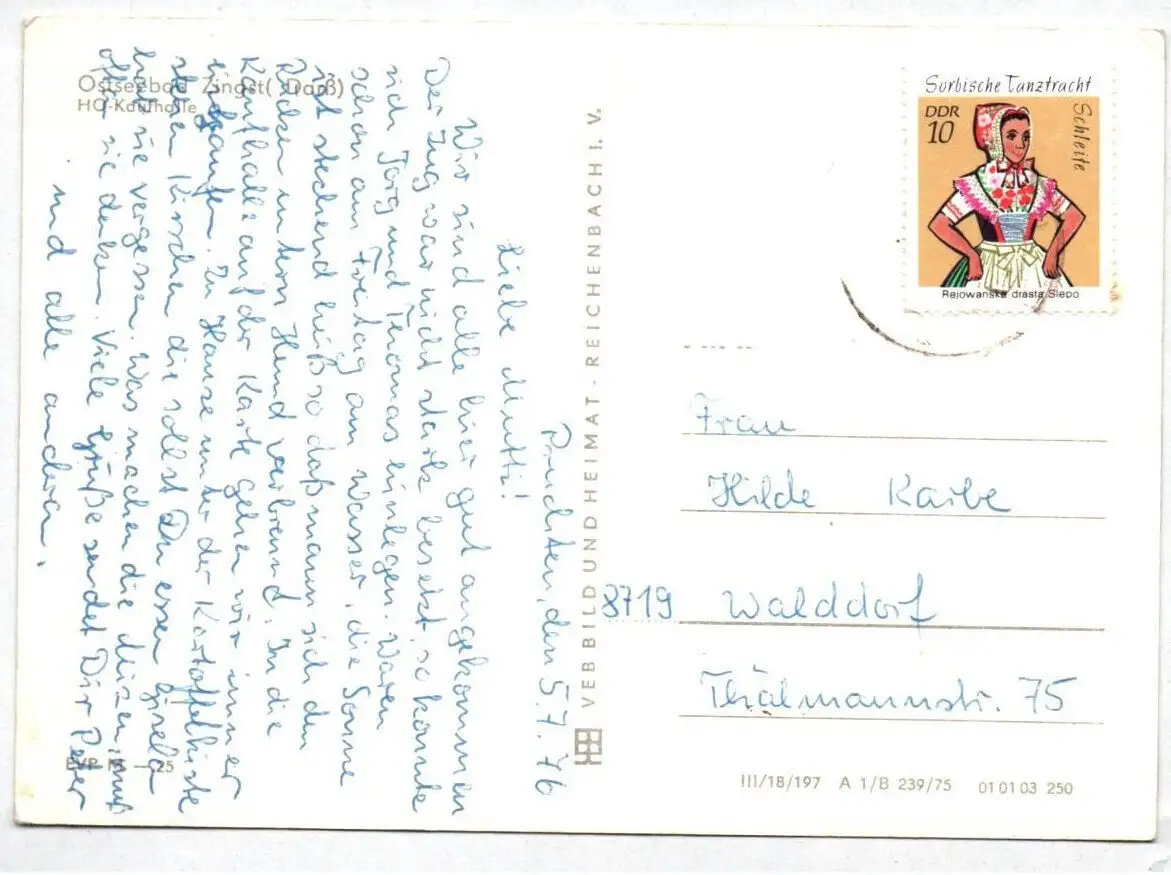 Ostseebad Zingst (Darß)
HO-Kaufhalle
Pruchten, den 5.7.76
Liebe Mutti!
Wir sind alle hier gut angekommen
Der Zug war nicht stark besetzt, so konnte
sich Jörg und Thomas hinlegen. Waren
schon am Freitag am Wasser, die Sonne
ist stechend heiß so daß man sich den
Rücken unterm Hemd verbrennd. In die
Kaufhalle auf der Karte gehen wir immer
einkaufen. Zu Hause unter der Kartoffelkiste
stehen Kirschen die sollst Du essen Gisela
hat sie vergessen. Was machen die Miezen, muß
oft an sie denken. Viele Grüße sendet Dir Peter
und alle andern.
EVP M –,25
VEB BILD UND HEIMAT - REICHENBACH I. V.
Sorbische Tanztracht
DDR
10
Schleife
Rejowanska drasta Slepo
Frau
Hilde Karbe
8719 Walddorf
Thälmannstr. 75
III/18/197 A 1/B 239/75 01 01 03 250